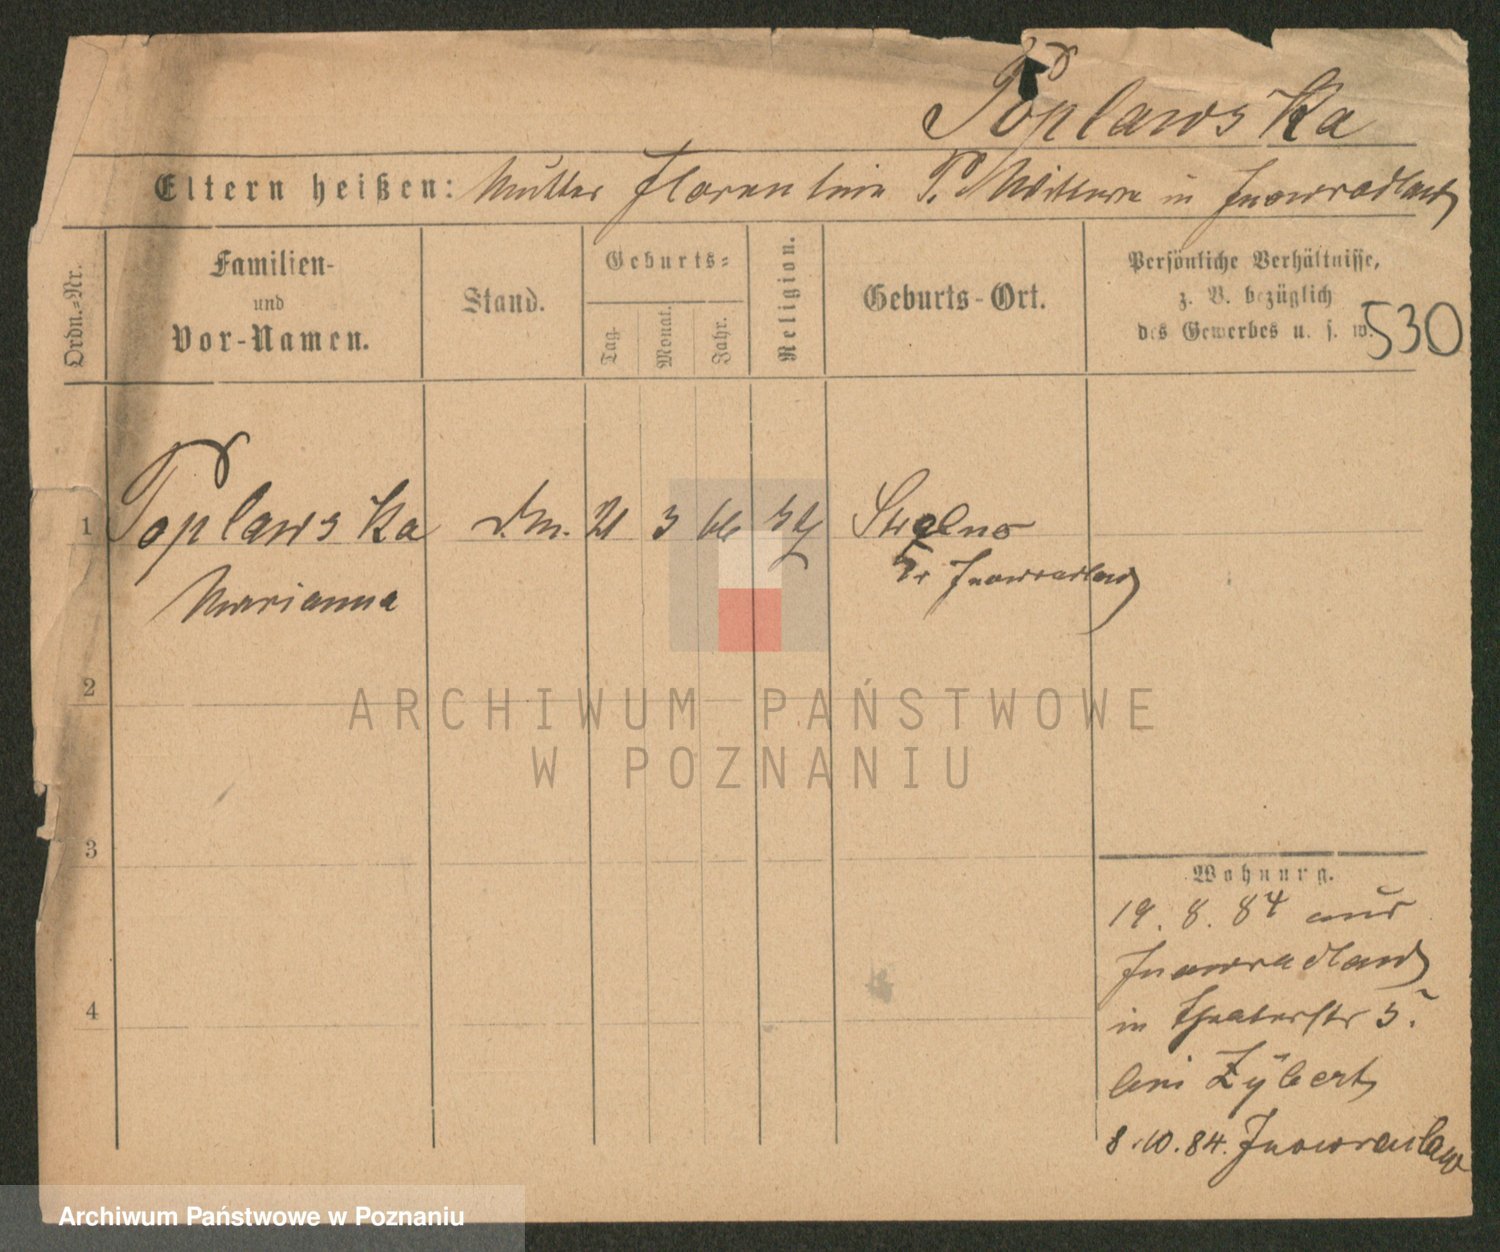 Toplawska
Eltern heißen: Mutter Florentine T. Wittwe in Inowradlaw
Ordn.-Nr.
Familien-
und
Vor-Namen.
Stand.
Geburts-
Tag.
Monat.
Jahr.
Religion.
Geburts-Ort.
Persönliche Verhältnisse,
z. B. bezüglich
des Gewerbes u. s. w.
530
1 Toplawska d.m. 21 3 66 Strelno
Kr Inowradlaw
Marianna
2
ARCHIWUM PAŃSTWOWE
W POZNANIU
3
Wohnung.
19. 8. 84 aus
Inowradlaw
in Theaterstr 5.
bei Zybert
4
8.10.84. Inowraclaw
Archiwum Państwowe w Poznaniu